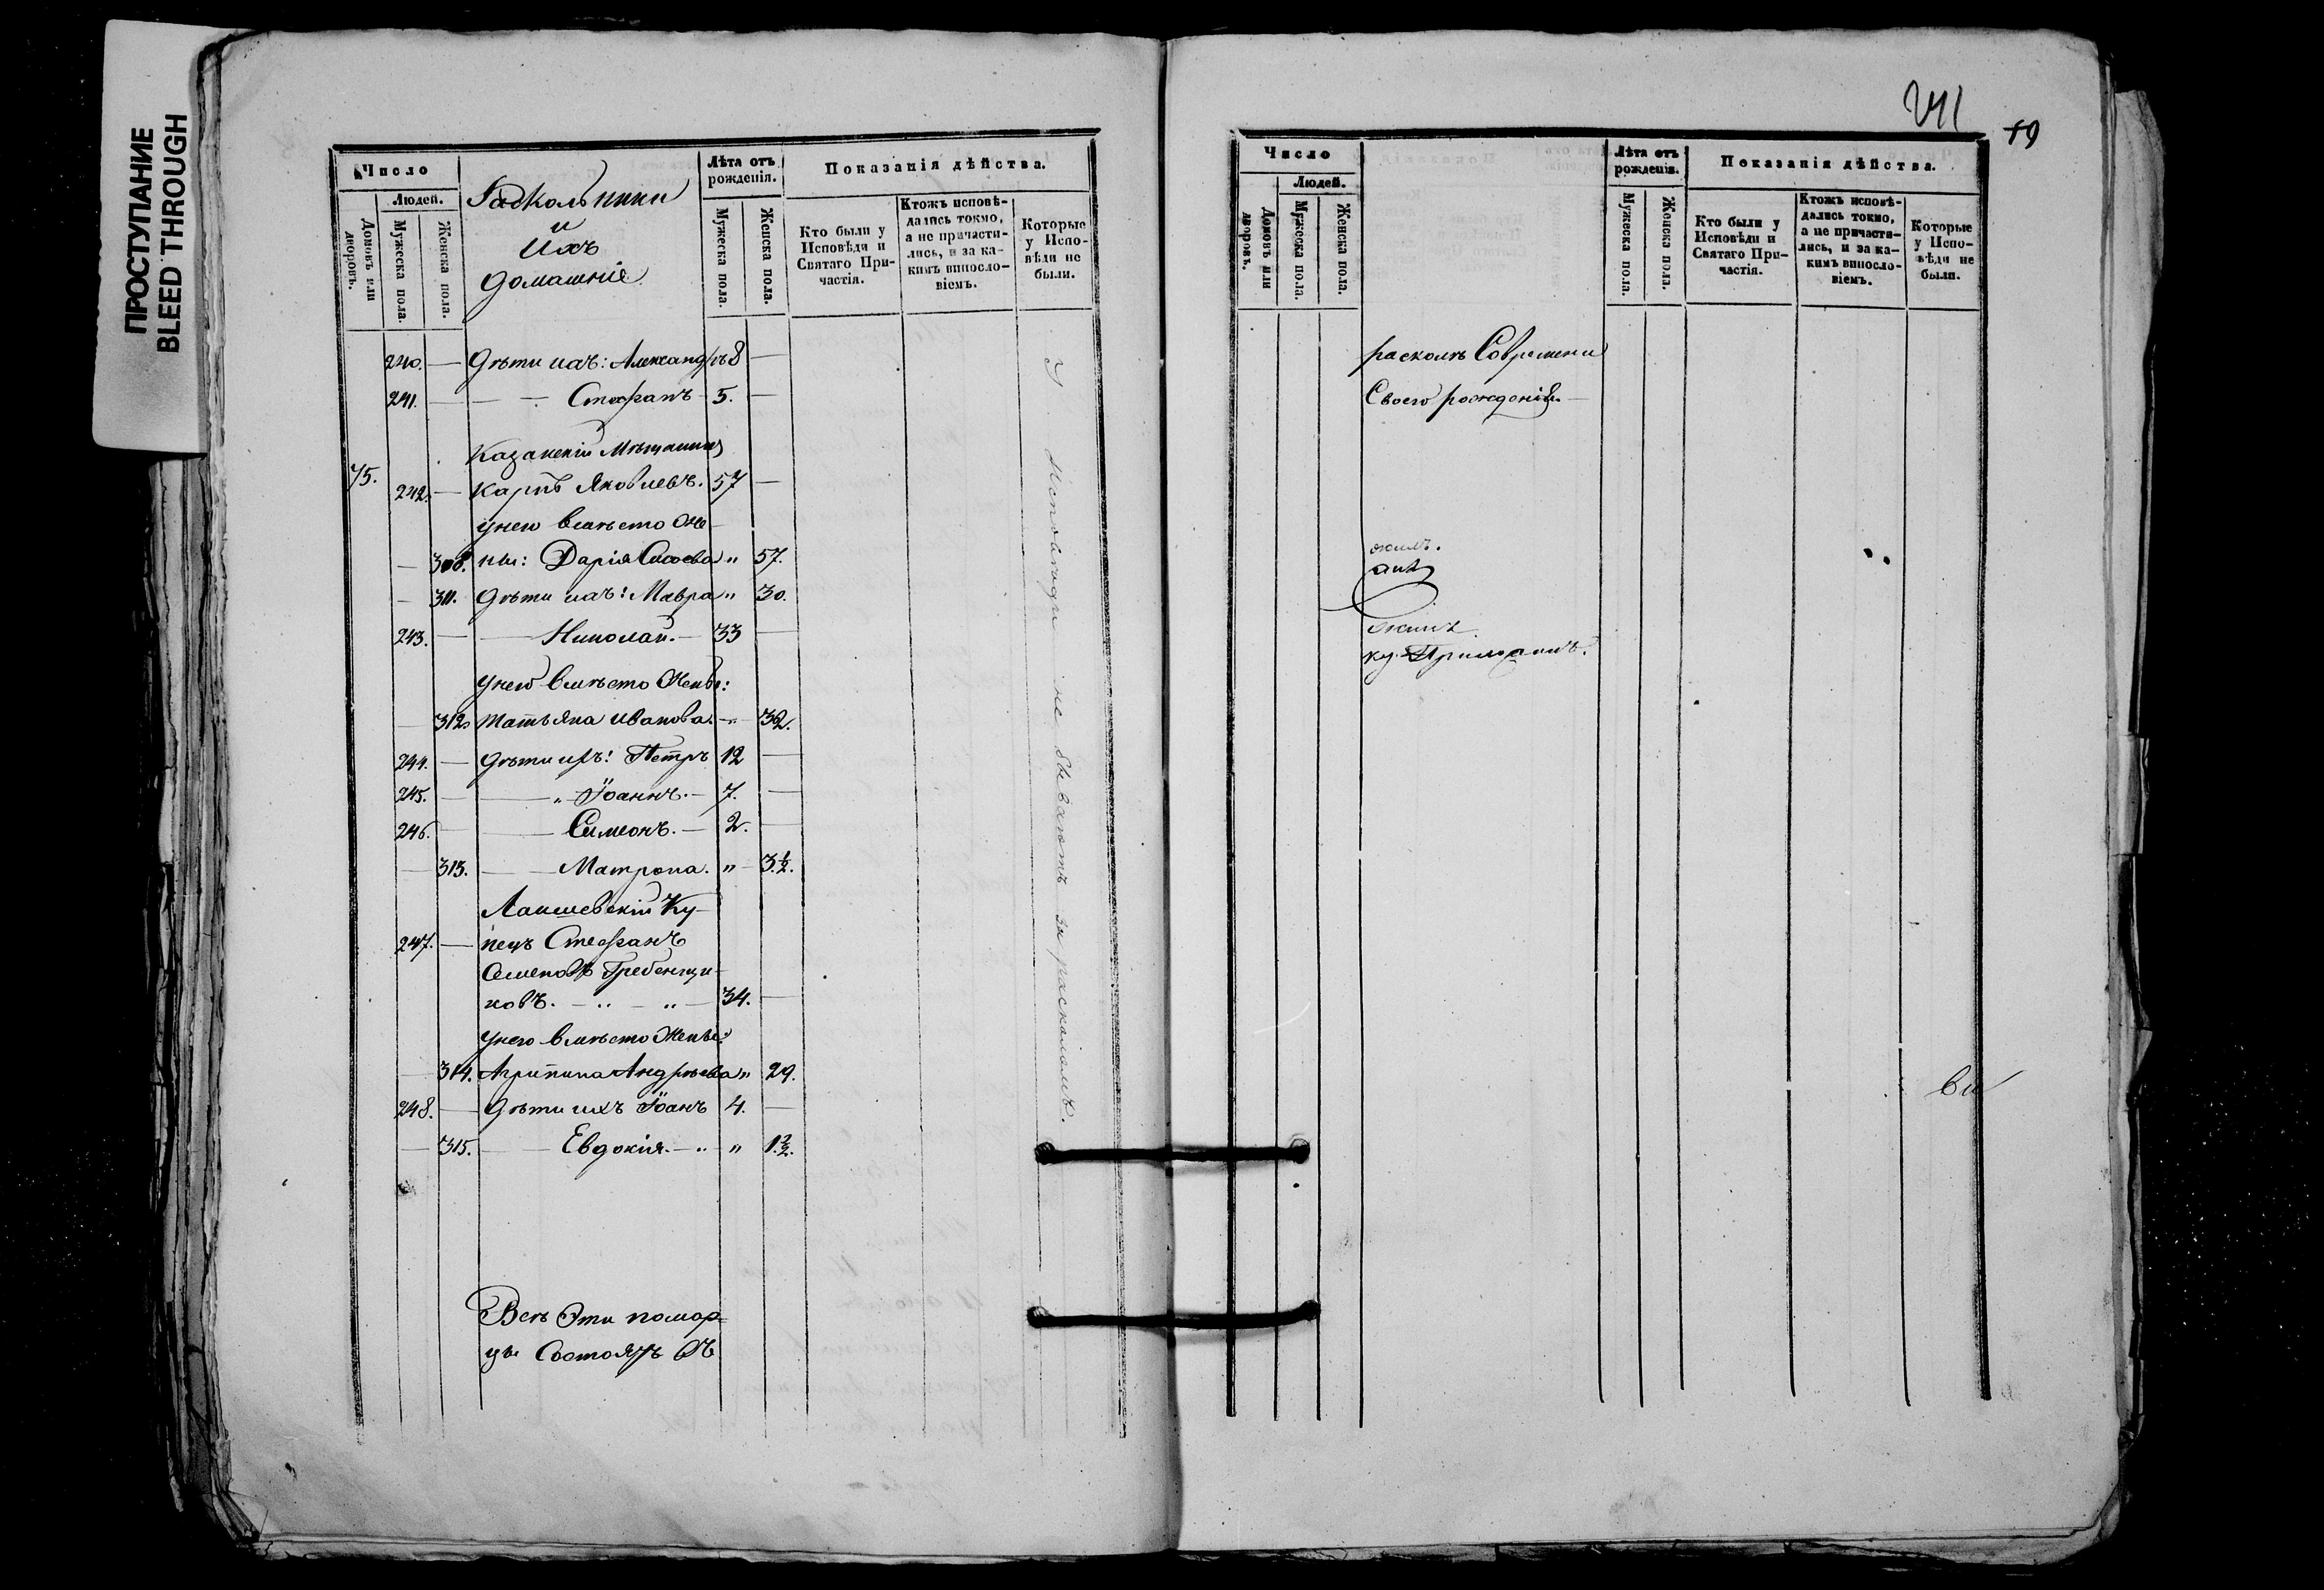 ПРОСТУПАНИЕ
BLEED THROUGH
Число
Людей.
Домовъ или дворовъ.
Мужеска пола.
Женска пола.
Раскольники
и
Ихъ
домашніе
Лѣта отъ рожденія.
Мужеска пола.
Женска пола.
Показанія дѣйства.
Кто были у Исповѣди и Святаго При-частія.
Ктожъ исповѣ-дались токмо, а не причасти-лись, и за ка-кимъ винословіемъ.
Которые у Испо-вѣди не были.
240. — Дѣти ихъ: Александръ 8 —
241. — — Стефанъ 5. —
Казанскій Мѣщанинъ
75. 242. — Карпъ Яковлевъ. 57 —
у него вмѣсто Же-
— 308. ны: Дарія Сысоева " 57.
— 311. Дѣти ихъ: Мавра " 30.
243. — — Николай. — 33 —
у него вмѣсто Жены:
— 312. Татьяна Иванова. — " 32.
244. — Дѣти ихъ: Петръ 12 —
245. — — " Іоаннъ. — 7. —
246. — — Симеонъ. — 2. —
— 313. — Матрона. " 3.½.
Лаишевскій Ку-
247. — пецъ Стефанъ
Семеновъ Гребенщи-
ковъ. — " — " — 34. —
у него вмѣсто Жены:
— 314. Агрипина Андрѣева " 29.
248. — Дѣти ихъ Іоанъ 4. —
— 315. — Евдокія. — " " 1.½.
Всѣ Эти помор=
цы Состоятъ въ
У исповѣди не бываютъ за расколомъ.
241
19
Число
Людей.
Домовъ или дворовъ.
Мужеска пола.
Женска пола.
Лѣта отъ рожденія.
Мужеска пола.
Женска пола.
Показанія дѣйства.
Кто были у Исповѣди и Святаго При-частія.
Ктожъ исповѣ-дались токмо, а не причасти-лись, и за ка-кимъ винословіемъ.
Которые у Испо-вѣди не были.
расколѣ Современи
Своего рожденія. —